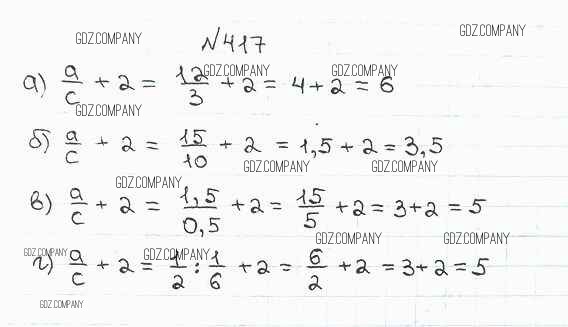 GDZ.COMPANY GDZ.COMPANY
№417
а) a/c + 2 = 12/3 + 2 = 4 + 2 = 6
GDZ.COMPANY GDZ.COMPANY
GDZ.COMPANY
б) a/c + 2 = 15/10 + 2 = 1,5 + 2 = 3,5
GDZ.COMPANY GDZ.COMPANY
GDZ.COMPANY
в) a/c + 2 = 1,5/0,5 + 2 = 15/5 + 2 = 3+2 = 5
GDZ.COMPANY GDZ.COMPANY
GDZ.COMPANY GDZ.COMPANY
г) a/c + 2 = 1/2 : 1/6 + 2 = 6/2 + 2 = 3+2 = 5
GDZ.COMPANY